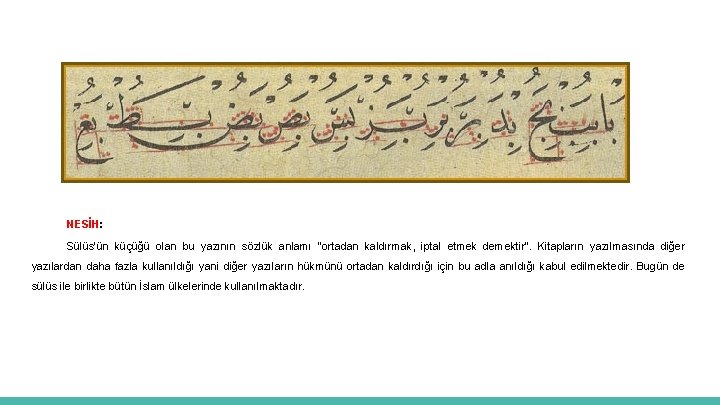 NESİH:
Sülüs'ün küçüğü olan bu yazının sözlük anlamı "ortadan kaldırmak, iptal etmek demektir". Kitapların yazılmasında diğer
yazılardan daha fazla kullanıldığı yani diğer yazıların hükmünü ortadan kaldırdığı için bu adla anıldığı kabul edilmektedir. Bugün de
sülüs ile birlikte bütün İslam ülkelerinde kullanılmaktadır.